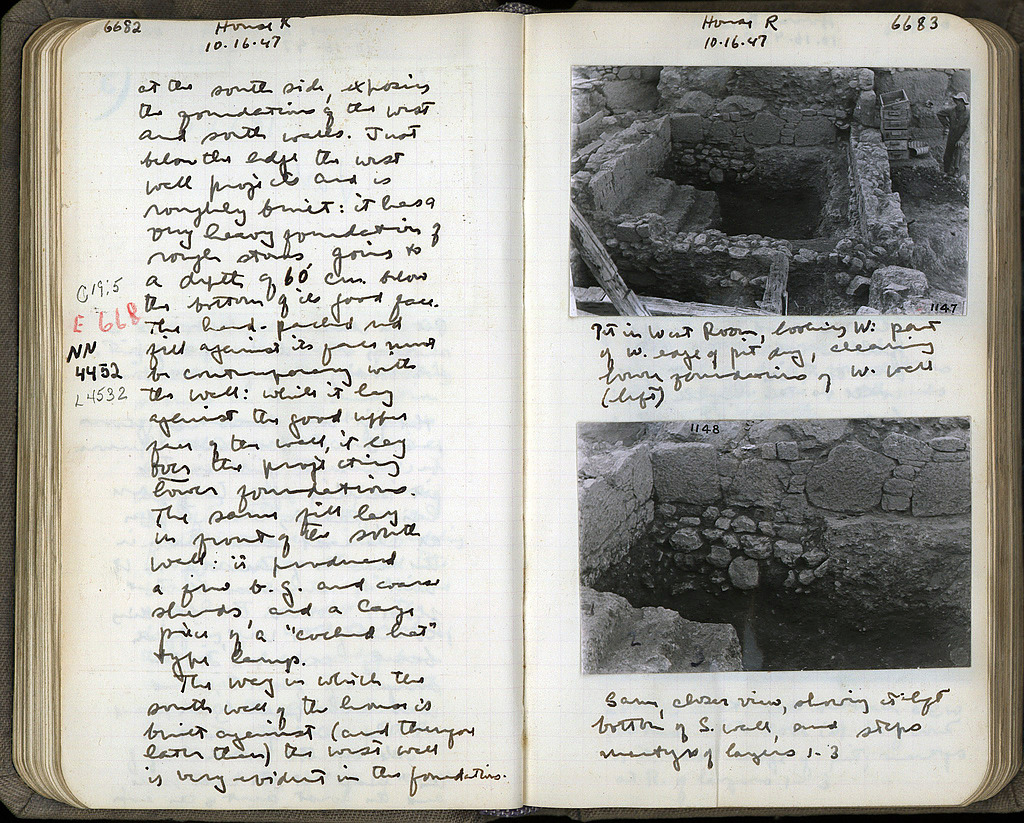 6682
House R
10.16.47
at the south side, exposing
the foundations of the west
and south walls. Just
below the edge the west
wall projects and is
roughly built: it has a
very heavy foundation of
rough stones, going to
a depth of 60 cm. below
the bottom of its good face.
The hard-packed red
fill against its face must
be contemporary with
the wall: while it lay
against the good upper
face of the wall, it lay
over the projecting
lower foundations.
The same fill lay
in front of the south
wall: it produced
a few b.g. and coarse
sherds, and a large
piece of a "cocked hat"
type lamp.
The way in which the
south wall of the house is
built against (and therefore
later than) the west wall
is very evident in the foundations.
C 19:5
E 668
NN
4452
L 4532
House R
10.16.47
6683
1147
Pit in West Room, looking W: part
of W. edge of pit dug, clearing
lower foundations of W. wall
(left)
1148
Same, closer view, showing at left
bottom of S. wall, and steps
of layers 1-3